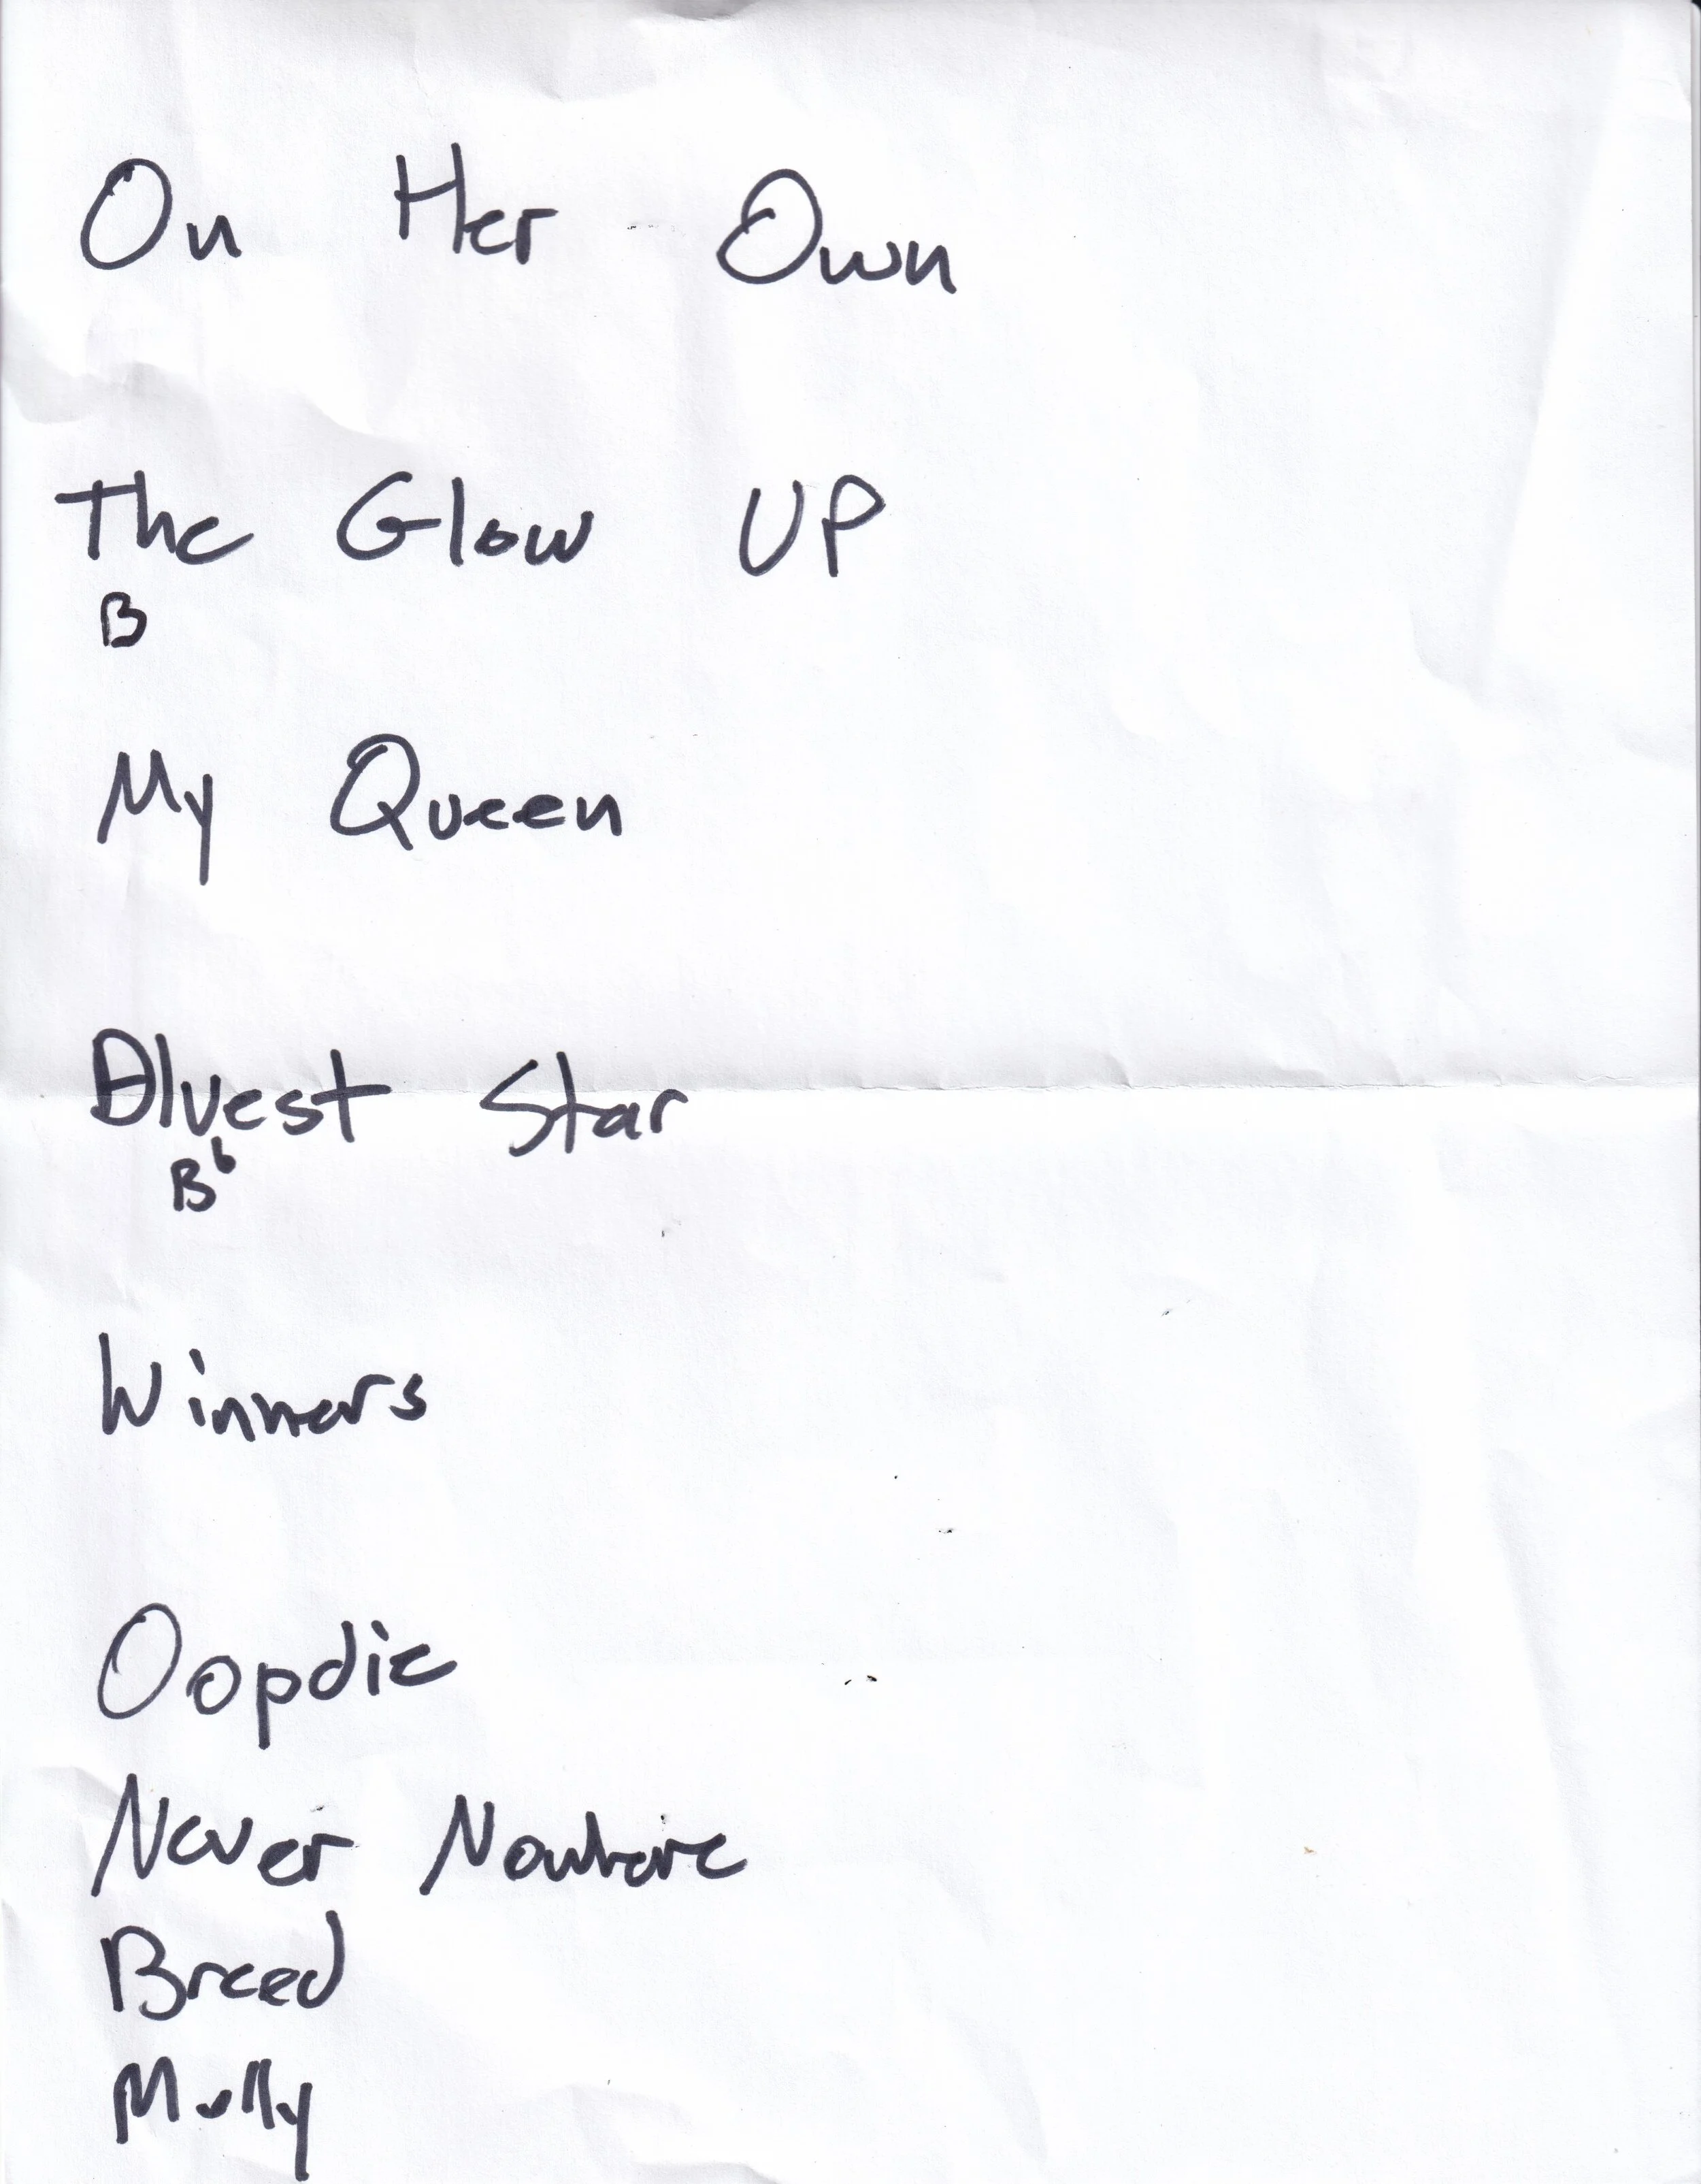 On Her Own
The Glow UP
B
My Queen
Bluest Star
B♭
Winners
Oopdie
Never Nowhere
Breed
Molly